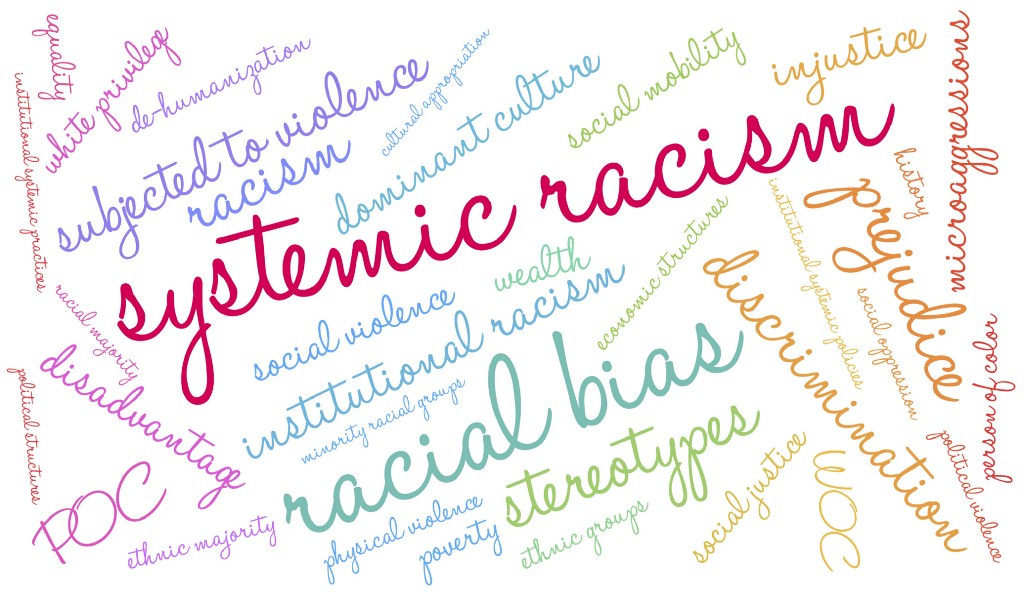 equality
white privileg
de-humanization
cultural appropriation
social mobility
injustice
microaggressions
institutional systemic practices
subjected to violence
racism
dominant culture
systemic racism
history
prejudice
institutional systemic policies
economic structures
wealth
racial majority
social violence
institutional racism
discrimination
social oppression
person of color
disadvantage
political structures
minority racial groups
racial bias
stereotypes
social justice
WOC
political violence
POC
ethnic majority
physical violence
poverty
ethnic groups